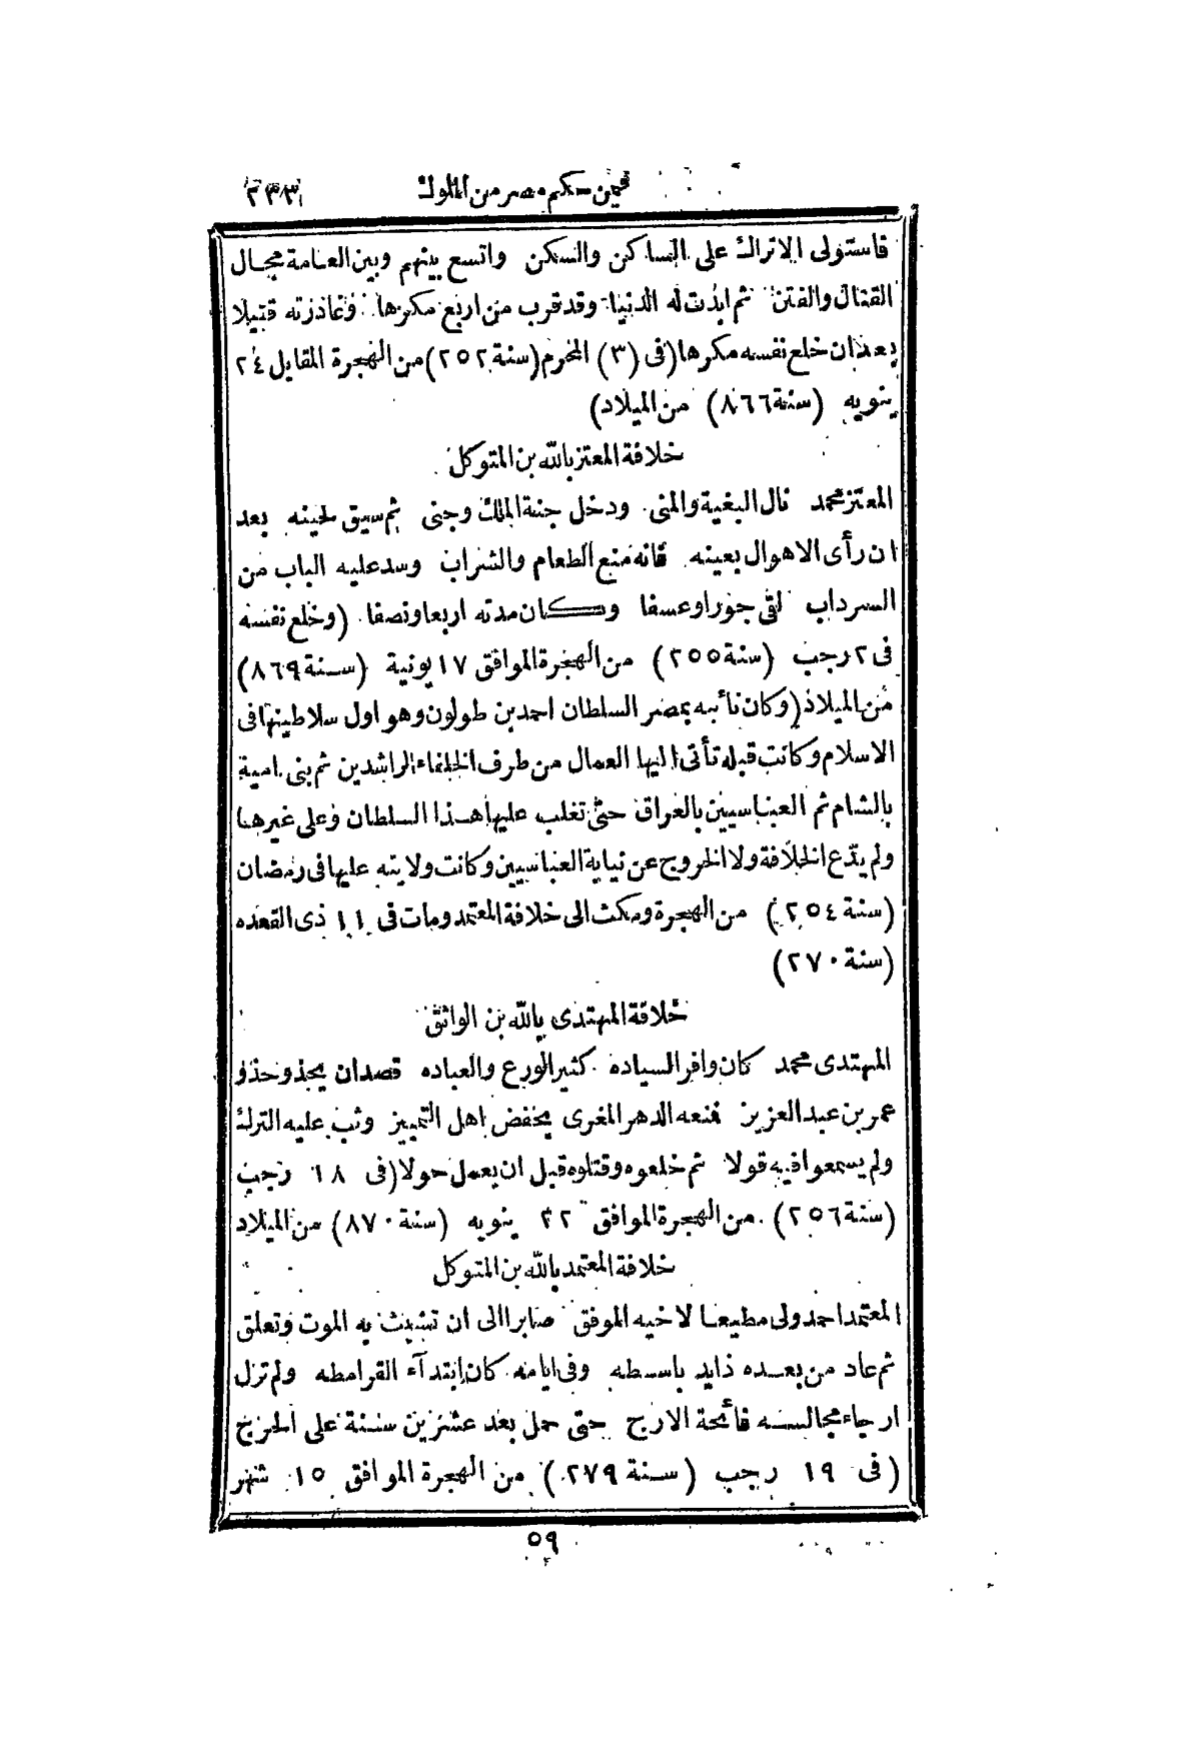 فيمن حكم مصر من الملوك
٢٣٣
فاستولى الاتراك على الساكن والسكن واتسع بينهم وبين العامة مجال
القتال والفتن ثم ابدت له الدنيا وقد قرب من اربع مكرها وغادرته قتيلا
بعد ان خلع نفسه مكرها (فى (٣) المحرم (سنة ٢٥٢) من الهجرة المقابل ٢٤
ينويه (سنة ٨٦٦) من الميلاد)
خلافة المعتز بالله بن المتوكل
المعتز محمد نال البغية والمنى ودخل جنة الملك وجنى ثم سيق لحينه بعد
ان رأى الاهوال بعينه فانه منع الطعام والشراب وسد عليه الباب من
السرداب لقى جورا وعسفا وكان مدته اربعا ونصفا (وخلع نفسه
فى ٢ رجب (سنة ٢٥٥) من الهجرة الموافق ١٧ يونية (سنة ٨٦٩)
من الميلاد (وكان نائبه بمصر السلطان احمد بن طولون وهو اول سلاطينها فى
الاسلام وكانت قبله تأتى اليها العمال من طرف الخلفاء الراشدين ثم بنى امية
بالشام ثم العباسيين بالعراق حتى تغلب عليها هذا السلطان وعلى غيرها
ولم يدّع الخلافة ولا الخروج عن نيابة العباسيين وكانت ولايته عليها فى رمضان
(سنة ٢٥٤) من الهجرة ومكث الى خلافة المعتمد ومات فى ١١ ذى القعده
(سنة ٢٧٠)
خلافة المهتدى بالله بن الواثق
المهتدى محمد كان وافر السياده كثير الورع والعباده قصد ان يحذو حذو
عمر بن عبد العزيز فمنعه الدهر المغرى بخفض اهل التمييز وثب عليه الترك
ولم يسمعوا فيه قولا ثم خلعوه وقتلوه قبل ان يعمل حولا (فى ١٨ رجب
(سنة ٢٥٦) من الهجرة الموافق ٢٢ ينويه (سنة ٨٧٠) من الميلاد
خلافة المعتمد بالله بن المتوكل
المعتمد احمد ولى مطيعا لاخيه الموفق صابرا الى ان تشبث به الموت وتعلق
ثم عاد من بعده ذايد باسطه وفى ايامه كان ابتدآء القرامطه ولم تزل
ارجاء مجالسه فائحة الارج حتى حمل بعد عشرين سنة على الحرج
(فى ١٩ رجب (سنة ٢٧٩) من الهجرة الموافق ١٥ شهر
٥٩